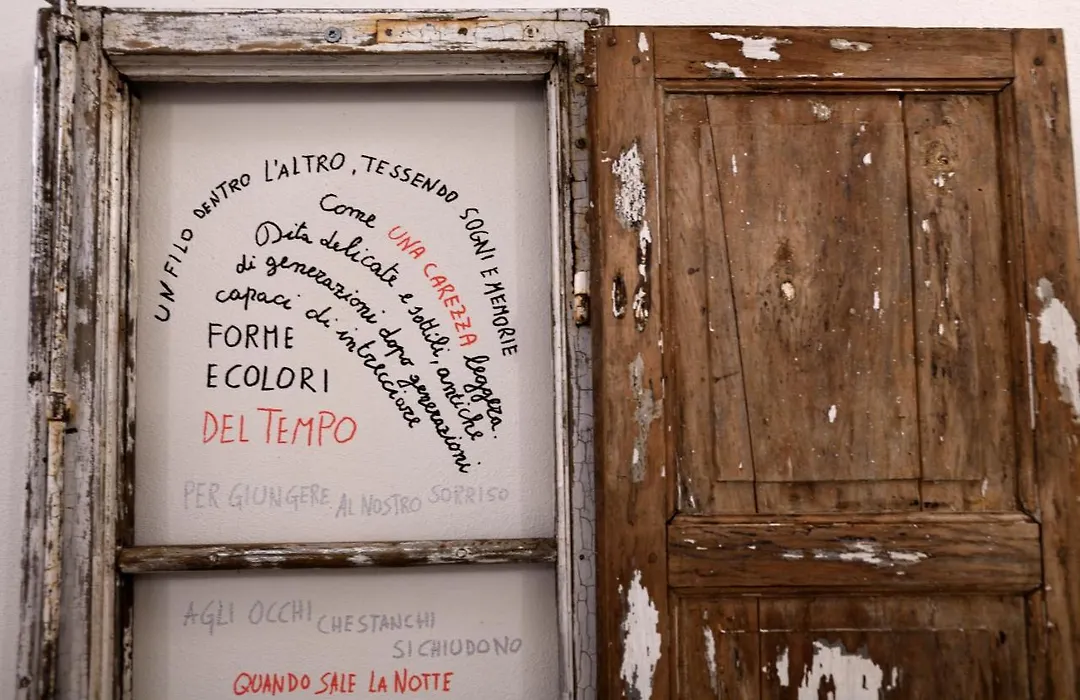 UN FILO DENTRO L'ALTRO, TESSENDO SOGNI E MEMORIE
Come UNA CAREZZA leggera.
Dita delicate e sottili, antiche
di generazioni dopo generazioni
capaci di intrecciare
FORME
E COLORI
DEL TEMPO
PER GIUNGERE AL NOSTRO SORRISO
AGLI OCCHI CHE STANCHI
SI CHIUDONO
QUANDO SALE LA NOTTE